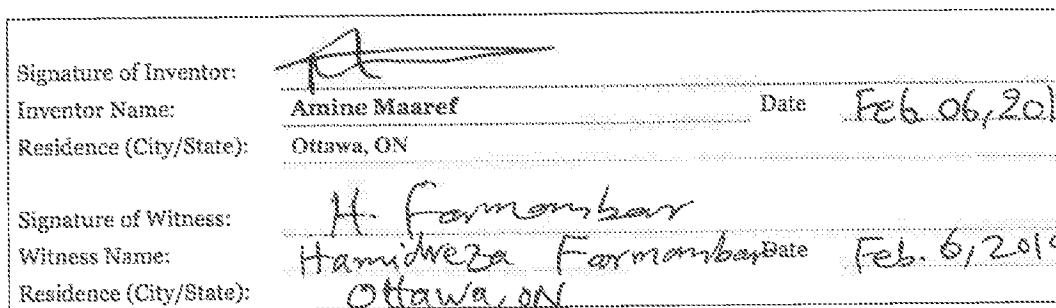 Signature of Inventor:
Inventor Name: Amine Maaref Date Feb 06, 201
Residence (City/State): Ottawa, ON
Signature of Witness: H. Farmanbar
Witness Name: Hamidreza Farmanbar Date Feb. 6, 2019
Residence (City/State): Ottawa, ON